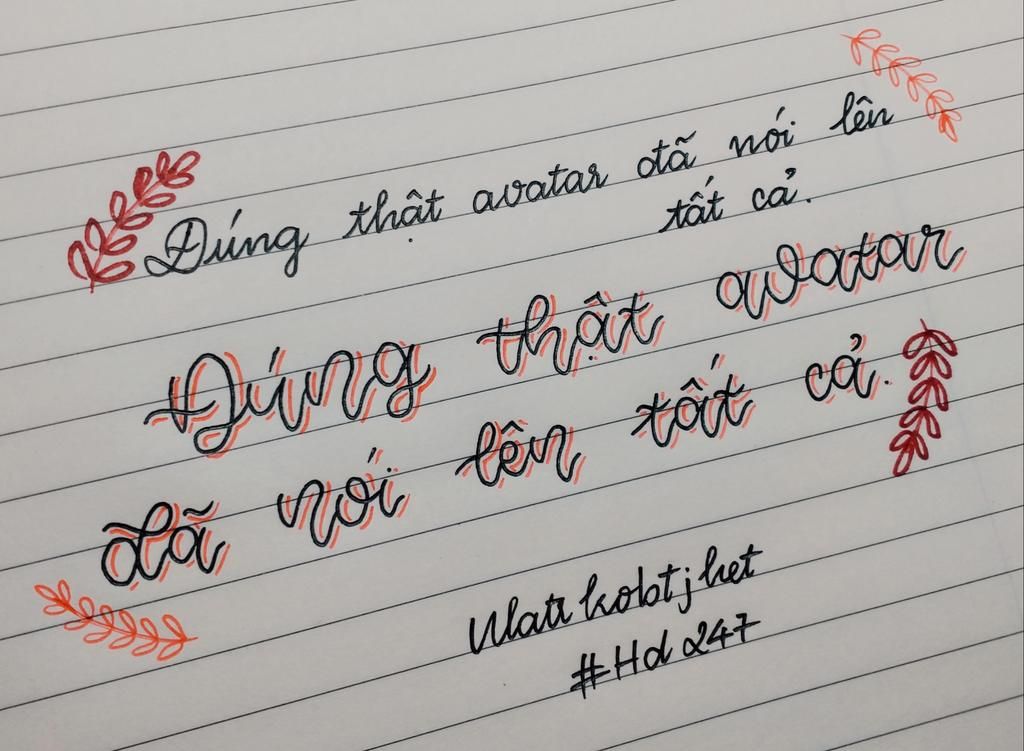 Đúng thật avatar đã nói lên
tất cả.
Đúng thật avatar
đã nói lên tất cả.
Watkobtjhet
#Hd247